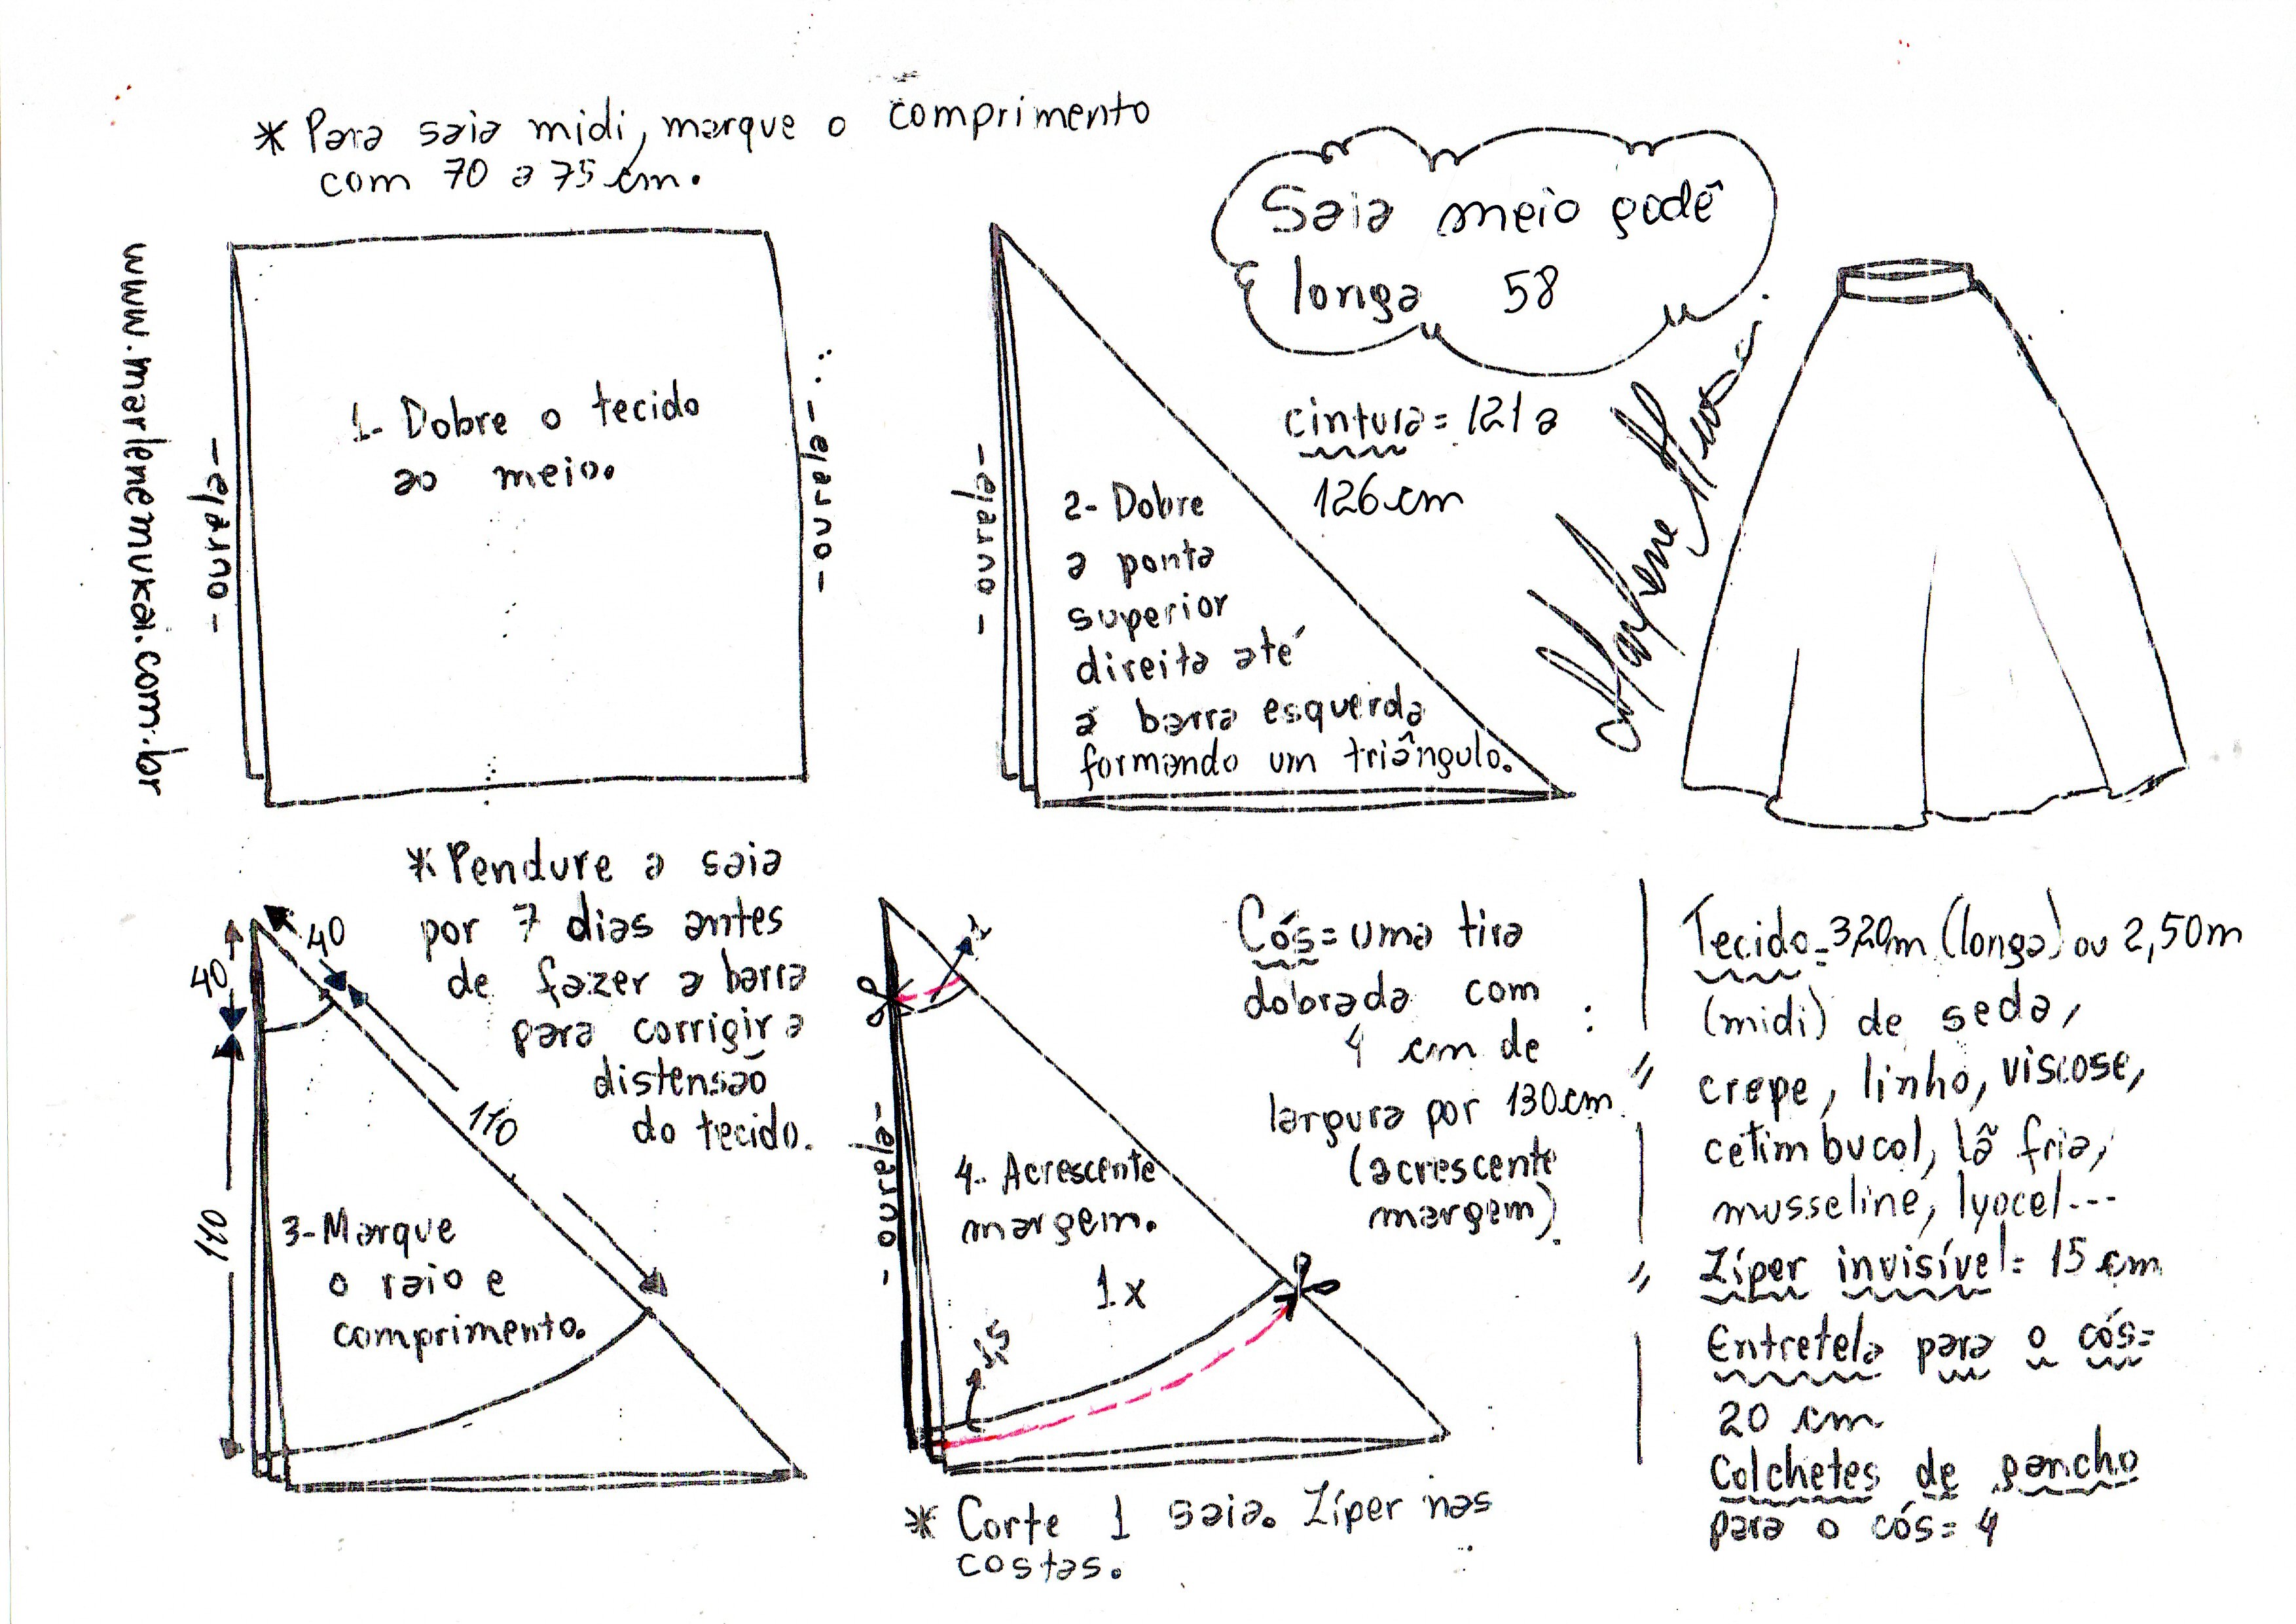 * Para saia midi, marque o comprimento
com 70 a 75 cm.
www.marlenemukai.com.br
- ourela -
1- Dobre o tecido
ao meio.
- ourela -
- ourela -
2- Dobre
a ponta
superior
direita até
a barra esquerda
formando um triângulo.
Saia meio godê
longa 58
cintura = 121 a
126 cm
Marlene Mukai
* Pendure a saia
por 7 dias antes
de fazer a barra
para corrigir a
distensão
do tecido.
40
40
110
110
3- Marque
o raio e
comprimento.
- ourela -
1
4- Acrescente
margem.
1x
1,5
* Corte 1 saia. Zíper nas
costas.
Cós = uma tira
dobrada com
4 cm de
largura por 130 cm
(acrescente
margem).
Tecido = 3,20m (longa) ou 2,50m
(midi) de seda,
crepe, linho, viscose,
cetim bucol, lã fria,
musseline, lyocel...
Zíper invisível = 15 cm
Entretela para o cós =
20 cm
Colchetes de gancho
para o cós = 4